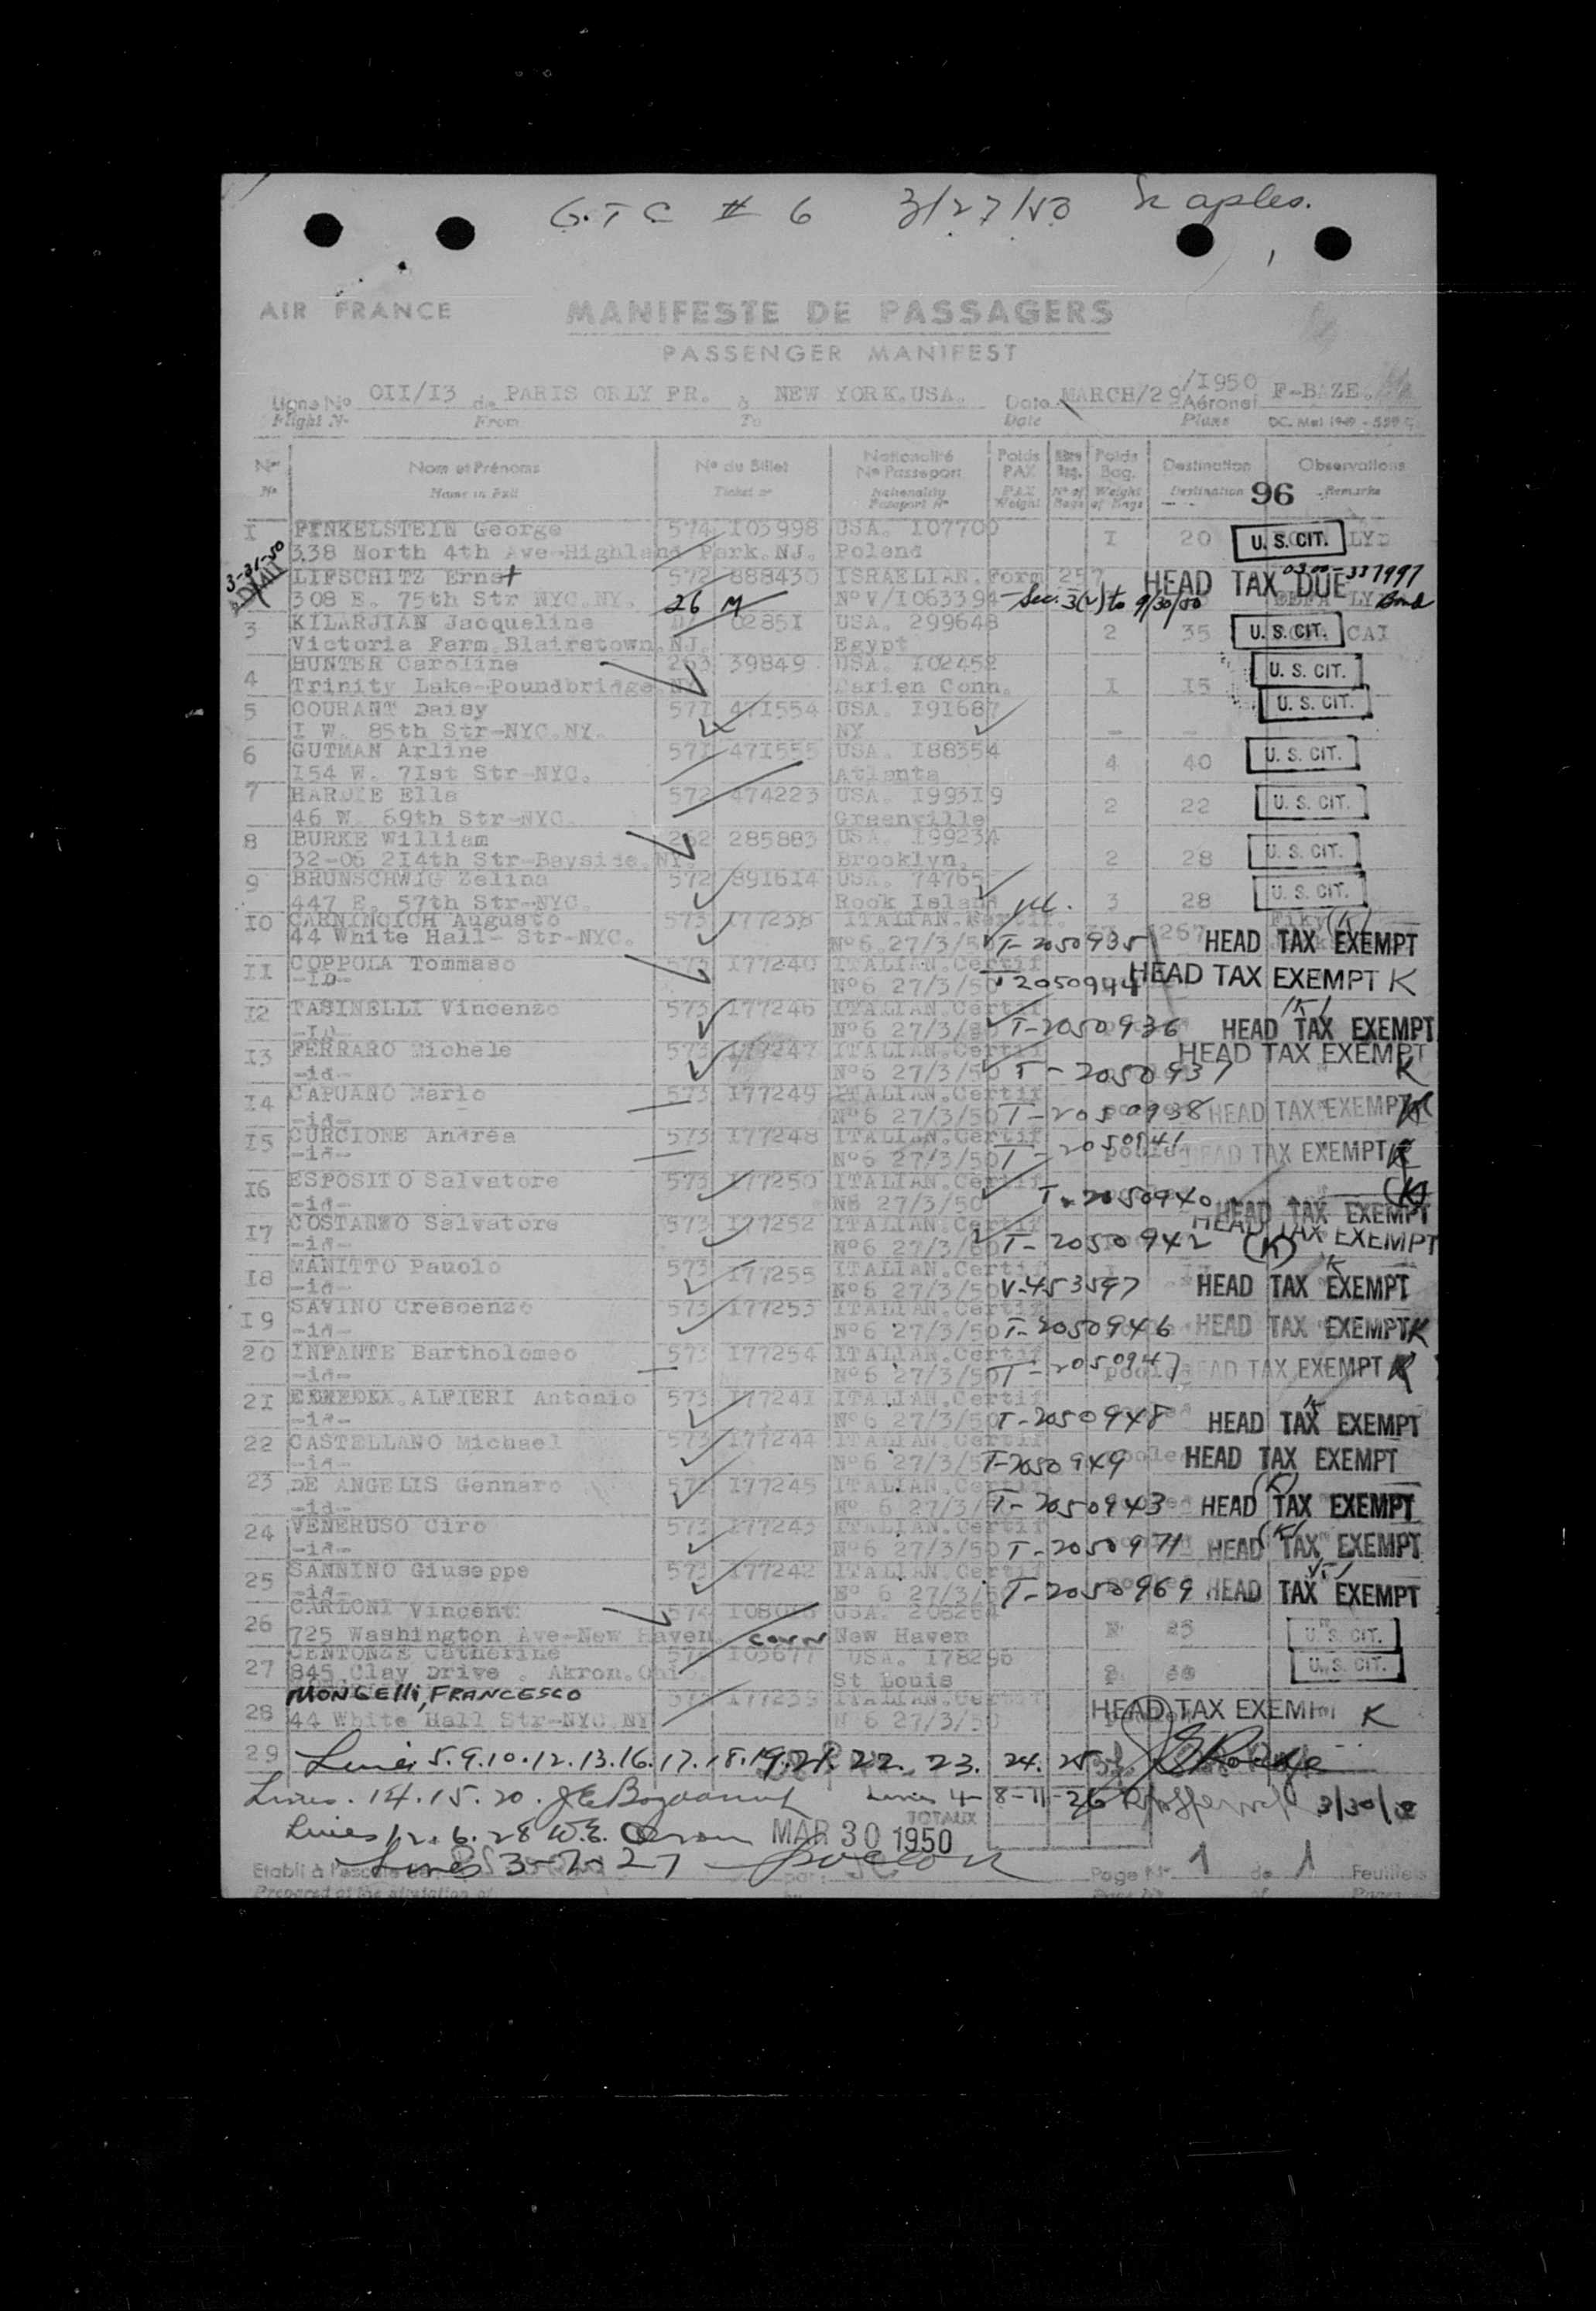 G.T.C # 6 3/27/50 Naples.
AIR FRANCE MANIFESTE DE PASSAGERS
PASSENGER MANIFEST
Ligne No OII/I3 de PARIS ORLY FR. à NEW YORK.USA. Date MARCH/29/I950 Aéronef F-BAZE.
Flight No From To Date Plane
No Nom et Prénoms No du Billet Nationalité No Passeport Poids PAX Poids Bag. Destination Observations
No Name in Full Ticket no Nationality Passport No PAX Weight No of Bags Weight of Bags Destination 96 Remarks
I FINKELSTEIN George 574 I03998 USA. I07700 I 20 U.S.CIT. LYD
338 North 4th Ave-Highland Park.NJ. Poland
3-31-50 LIFSCHITZ Ernst 572 888430 ISRAELIAN.Form 257 HEAD TAX DUE 0300-337997
308 E. 75th Str NYC.NY. 26 M No V/I063394 Sec. 3(2) to 9/30/50 LYD Bond
3 KILARJIAN Jacqueline 0285I USA. 299648 2 35 U.S.CIT. CAI
Victoria Farm.Blairstown.NJ. Egypt
4 HUNTER Caroline 263 39849 USA. I02452 U.S.CIT.
Trinity Lake-Poundbridge.NY Darien Conn. I I5
5 COURANT Daisy 57I 47I554 USA. I9I687 U.S.CIT.
I W. 85th Str-NYC.NY. NY - -
6 GUTMAN Arline 57I 47I555 USA. I88354 4 40 U.S.CIT.
I54 W. 7Ist Str-NYC. Atlanta
7 HARDIE Ella 572 474223 USA. I993I9 2 22 U.S.CIT.
46 W. 69th Str-NYC. Greenville
8 BURKE William 262 285883 USA. I99234 2 28 U.S.CIT.
32-05 2I4th Str-Bayside.NY. Brooklyn.
9 BRUNSCHWIG Zelina 572 89I6I4 USA. 74765 3 28 U.S.CIT.
447 E. 57th Str-NYC. Rock Island
IO CARNINCICH Augusto 573 I77238 ITALIAN.Certif.
44 White Hall- Str-NYC. No6.27/3/50 T-2050935 267 HEAD TAX EXEMPT (K)
II COPPOLA Tommaso 573 I77240 ITALIAN.Certif
-ID- No6 27/3/50 T 2050944 HEAD TAX EXEMPT K
I2 TASINELLI Vincenzo 573 I77246 ITALIAN.Certif (K)
-ID- No6 27/3/50 T-2050936 HEAD TAX EXEMPT
I3 FERRARO Michele 573 I77247 ITALIAN.Certif HEAD TAX EXEMPT
-id- No6 27/3/50 T-2050937 K
I4 CAPUANO Mario 573 I77249 ITALIAN.Certif
-id- No6 27/3/50 T-2050938 HEAD TAX EXEMPT K
I5 CURCIONE Andréa 573 I77248 ITALIAN.Certif
-id- No6 27/3/50 T-2050941 pooled HEAD TAX EXEMPT K
I6 ESPOSITO Salvatore 573 I77250 ITALIAN.Certif (K)
-id- N6 27/3/50 T-2050940 HEAD TAX EXEMPT
I7 COSTANZO Salvatore 573 I77252 ITALIAN.Certif HEAD TAX EXEMPT
-id- No6 27/3/50 T-2050942 (K)
I8 MANITTO Pauolo 573 I77255 ITALIAN.Certif K
-id- No6 27/3/50 V-453597 HEAD TAX EXEMPT
I9 SAVINO Crescenzo 573 I77253 ITALIAN.Certif
-id- No6 27/3/50 T-2050946 HEAD TAX EXEMPT K
20 INFANTE Bartholomeo 573 I77254 ITALIAN.Certif
-id- No6 27/3/50 T-2050947 pooled HEAD TAX EXEMPT K
2I ALFIERI Antonio 573 I7724I ITALIAN.Certif K
-id- No6 27/3/50 T-2050948 HEAD TAX EXEMPT
22 CASTELLANO Michael 573 I77244 ITALIAN.Certif
-id- No6 27/3/50 T-2050949 pooled HEAD TAX EXEMPT
23 DE ANGELIS Gennaro 573 I77245 ITALIAN.Certif (K)
-id- No 6 27/3/50 T-2050943 HEAD TAX EXEMPT
24 VENERUSO Ciro 573 I77243 ITALIAN.Certif (K)
-id- No6 27/3/50 T-2050971 HEAD TAX EXEMPT
25 SANNINO Giuseppe 573 I77242 ITALIAN.Certif (K)
-id- No 6 27/3/50 T-2050969 HEAD TAX EXEMPT
26 CARLONI Vincent 574 USA. U.S.CIT.
725 Washington Ave-New Haven. CONN New Haven
27 CENTONZE Catherine I03677 USA. I78296 U.S.CIT.
845 Clay Drive . Akron.Ohio. St Louis
28 MONGELLI, FRANCESCO 573 I77239 ITALIAN.Certif HEAD TAX EXEMPT K
44 White Hall Str-NYC NY No 6 27/3/50
29 Lines 5.9.10.12.13.16.17.18.19.21.22. 23. 24. 25
Lines. 14.15.20. Lines 4-8-11-26 3/30/50
TOTAUX
Lines 1.2.6.28 W.E. MAR 30 1950
Lines 3-7-27
Etabli à l'escale de par: Page No 1 de 1 Feuillets
Prepared at the station of